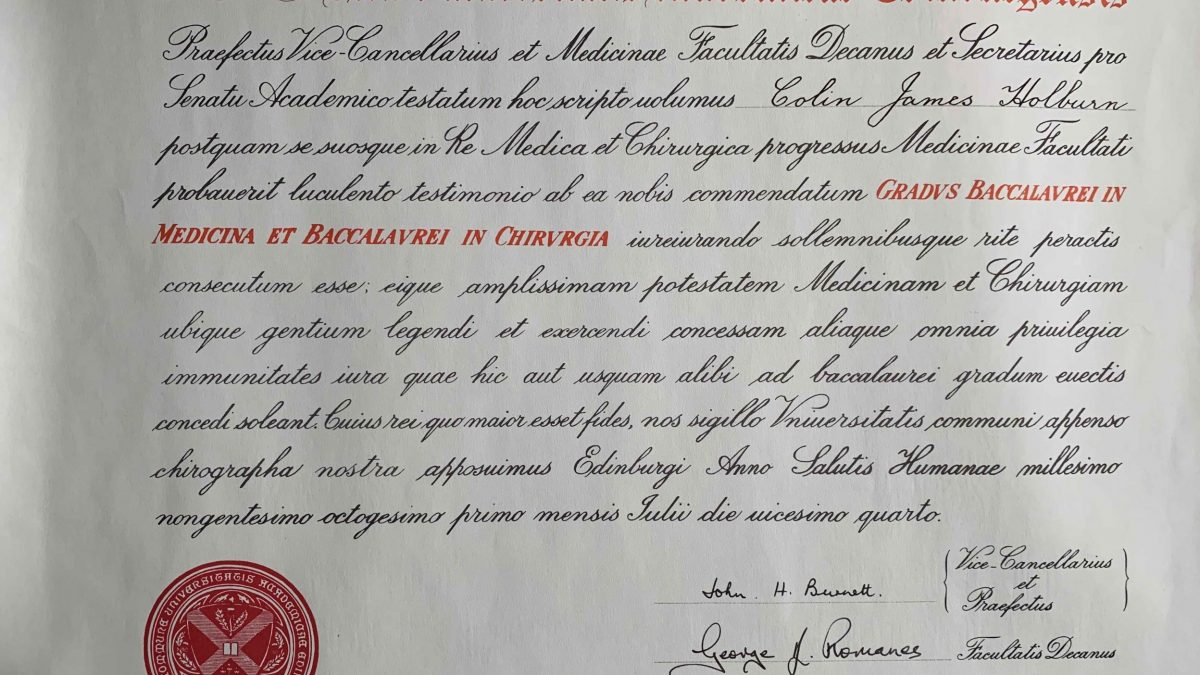 Praefectus Vice-Cancellarius et Medicinae Facultatis Decanus et Secretarius pro
Senatu Academico testatum hoc scripto uolumus Colin James Holburn
postquam se suosque in Re Medica et Chirurgica progressus Medicinae Facultati
probauerit luculento testimonio ab ea nobis commendatum GRADVS BACCALAVREI IN
MEDICINA ET BACCALAVREI IN CHIRVRGIA iureiurando sollemnibusque rite peractis
consecutum esse; eique amplissimam potestatem Medicinam et Chirurgiam
ubique gentium legendi et exercendi concessam aliaque omnia priuilegia
immunitates iura quae hic aut usquam alibi ad baccalaurei gradum euectis
concedi soleant. Cuius rei quo maior esset fides, nos sigillo Vniuersitatis communi appenso
chirographa nostra apposuimus Edinburgi Anno Salutis Humanae millesimo
nongentesimo octogesimo primo mensis Iulii die uicesimo quarto.
John. H. Burnett. Vice-Cancellarius
et
Praefectus
George J. Romanes Facultatis Decanus
COMMUNE UNIVERSITATIS ACADEMICAE